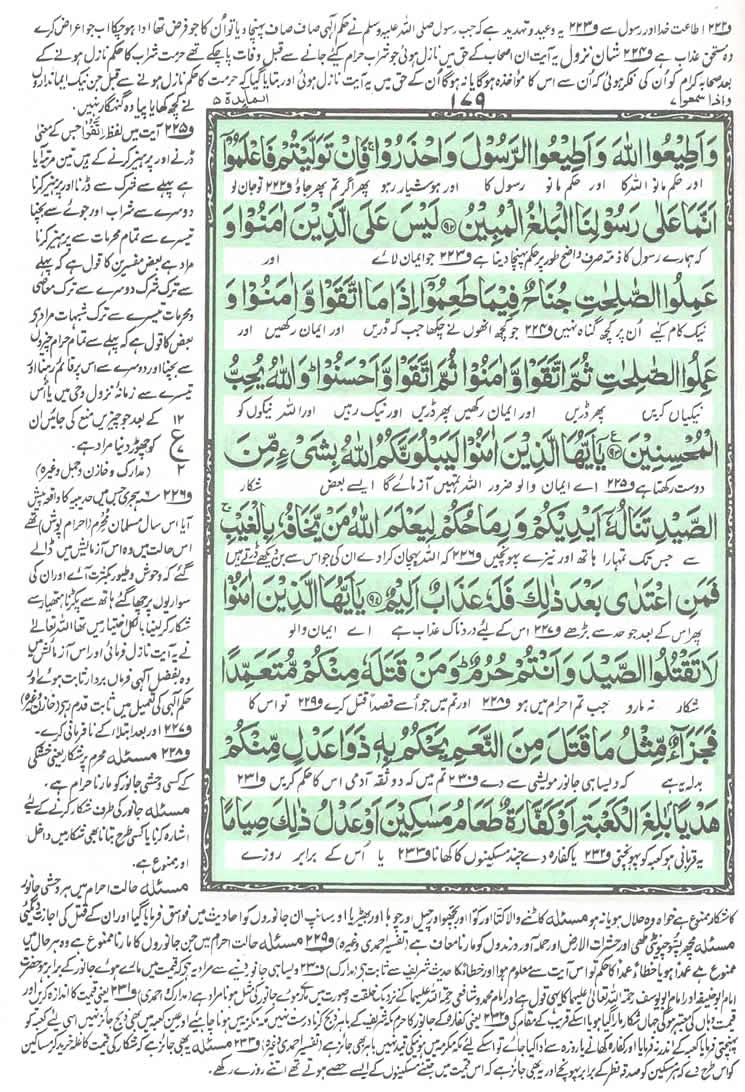 و۲۲۲ اطاعت خدا اور رسول سے و۲۲۳ یہ وعید و تہدید ہے کہ جب رسول صلی اللہ علیہ وسلم نے حکم الٰہی صاف صاف پہنچا دیا تو اُن کا جو فرض تھا ادا ہو چکا اب جو اعراض کرے
وہ مستحق عذاب ہے و۲۲۴ شان نزول یہ آیت ان اصحاب کے حق میں نازل ہوئی جو شراب حرام کیے جانے سے قبل وفات پا چکے تھے حرمت شراب کا حکم نازل ہونے کے
بعد صحابہ کرام کو اُن کی فکر ہوئی کہ اُن سے اس کا مواخذہ ہوگا یا نہ ہوگا اُن کے حق میں یہ آیت نازل ہوئی اور بتایا گیا کہ حرمت کا حکم نازل ہونے سے قبل جن نیک ایمانداروں
واذا سمعوا ۷
۱۷۹
المائدة ۵
وَاَطِیْعُوا اللّٰهَ وَاَطِیْعُوا الرَّسُوْلَ وَاحْذَرُوْا ۚ فَاِنْ تَوَلَّیْتُمْ فَاعْلَمُوْۤا
اور حکم مانو اللہ کا اور حکم مانو رسول کا اور ہوشیار رہو پھر اگر تم پھر جاؤ و۲۲۲ تو جان لو
اَنَّمَا عَلٰی رَسُوْلِنَا الْبَلٰغُ الْمُبِیْنُ ﴿۹۲﴾ لَیْسَ عَلَی الَّذِیْنَ اٰمَنُوْا وَ
کہ ہمارے رسول کا ذمہ صرف واضح طور پر حکم پہنچا دینا ہے و۲۲۳ جو ایمان لائے اور
عَمِلُوا الصّٰلِحٰتِ جُنَاحٌ فِیْمَا طَعِمُوْۤا اِذَا مَا اتَّقَوْا وَّاٰمَنُوْا وَ
نیک کام کیے اُن پر کچھ گناہ نہیں و۲۲۴ جو کچھ انھوں نے چکھا جب کہ ڈریں اور ایمان رکھیں اور
عَمِلُوا الصّٰلِحٰتِ ثُمَّ اتَّقَوْا وَّاٰمَنُوْا ثُمَّ اتَّقَوْا وَّاَحْسَنُوْا ؕ وَاللّٰهُ یُحِبُّ
نیکیاں کریں پھر ڈریں اور ایمان رکھیں پھر ڈریں اور نیک رہیں اور اللہ نیکوں کو
الْمُحْسِنِیْنَ ﴿۹۳﴾ یٰۤاَیُّهَا الَّذِیْنَ اٰمَنُوْا لَیَبْلُوَنَّكُمُ اللّٰهُ بِشَیْءٍ مِّنَ
دوست رکھتا ہے و۲۲۵ اے ایمان والو ضرور اللہ تمہیں آزمائے گا ایسے بعض شکار
الصَّیْدِ تَنَالُهٗۤ اَیْدِیْكُمْ وَرِمَاحُكُمْ لِیَعْلَمَ اللّٰهُ مَنْ یَّخَافُهٗ بِالْغَیْبِ ۚ
سے جس تک تمہارا ہاتھ اور نیزے پہونچیں و۲۲۶ کہ اللہ پہچان کرا دے ان کی جو اس سے بن دیکھے ڈرتے ہیں
فَمَنِ اعْتَدٰی بَعْدَ ذٰلِكَ فَلَهٗ عَذَابٌ اَلِیْمٌ ﴿۹۴﴾ یٰۤاَیُّهَا الَّذِیْنَ اٰمَنُوْا
پھر اس کے بعد جو حد سے بڑھے و۲۲۷ اس کے لیے دردناک عذاب ہے اے ایمان والو
لَا تَقْتُلُوا الصَّیْدَ وَاَنْتُمْ حُرُمٌ ؕ وَمَنْ قَتَلَهٗ مِنْكُمْ مُّتَعَمِّدًا
شکار نہ مارو جب تم احرام میں ہو و۲۲۸ اور تم میں جو اُسے قصداً قتل کرے و۲۲۹ تو اس کا
فَجَزَآءٌ مِّثْلُ مَا قَتَلَ مِنَ النَّعَمِ یَحْكُمُ بِهٖ ذَوَا عَدْلٍ مِّنْكُمْ
بدلہ یہ ہے کہ ویسا ہی جانور مویشی سے دے و۲۳۰ تم میں کہ دو ثقہ آدمی اس کا حکم کریں و۲۳۱
هَدْیًۢا بٰلِغَ الْكَعْبَةِ اَوْ كَفَّارَةٌ طَعَامُ مَسٰكِیْنَ اَوْ عَدْلُ ذٰلِكَ صِیَامًا
یہ قربانی ہو کعبہ کو پہونچتی و۲۳۲ یا کفارہ دے چند مسکینوں کا کھانا و۲۳۳ یا اُس کے برابر روزے
نے کچھ کھایا پیا وہ گنہگار نہیں.
و۲۲۵ آیت میں لفظ اِتَّقَوْا جس کے معنی
ڈرنے اور پرہیز کرنے کے ہیں تین مرتبہ آیا
ہے پہلے سے شرک سے ڈرنا اور پرہیز کرنا
دوسرے سے شراب اور جوئے سے بچنا
تیسرے سے تمام محرمات سے پرہیز کرنا
مراد ہے بعض مفسرین کا قول ہے کہ پہلے
سے ترک شرک دوسرے سے ترک معاصی
و محرمات تیسرے سے ترک شبہات مراد ہے
بعض کا قول ہے کہ پہلے سے تمام حرام چیزوں
سے بچنا اور دوسرے سے اس پر قائم رہنا اور
تیسرے سے زمانہ نزول وحی میں یا اُس
کے بعد جو چیزیں منع کی جائیں ان
کو چھوڑ دینا مراد ہے.
(مدارک و خازن و جمل وغیرہ)
۱۲
ع
۷
۲
و۲۲۶ ۶ ہجری جس میں حدیبیہ کا واقعہ پیش
آیا اس سال مسلمان محرم (احرام پوش) تھے
اس حالت میں وہ اس آزمائش میں ڈالے
گئے کہ وحوش و طیور بکثرت آئے اور ان کی
سواریوں پر چھا گئے ہاتھ سے پکڑنا ہتھیار سے
شکار کر لینا بالکل اختیار میں تھا اللہ تعالیٰ
نے یہ آیت نازل فرمائی اور اس آزمائش میں
وہ بفضل الٰہی فرماں بردار ثابت ہوئے اور
حکم الٰہی کی تعمیل میں ثابت قدم رہے (خازن وغیرہ)
و۲۲۷ اور بعد ابتلاء کے نافرمانی کرے.
و۲۲۸ مسئلہ محرم پر شکار یعنی خشکی
کے کسی وحشی جانور کو مارنا حرام ہے.
مسئلہ جانور کی طرف شکار کرنے کے لیے
اشارہ کرنا یا کسی طرح بتانا بھی شکار میں داخل
اور ممنوع ہے.
مسئلہ حالت احرام میں ہر وحشی جانور
کا شکار ممنوع ہے خواہ وہ حلال ہو یا نہ ہو مسئلہ کاٹنے والا کتا اور کوا اور بچھو اور چیل اور چوہا اور بھیڑیا اور سانپ ان جانوروں کو احادیث میں فواسق فرمایا گیا اور ان کے قتل کی اجازت دی گئی
مسئلہ مچھر پسو چیونٹی مکھی اور حشرات الارض اور حملہ آور درندوں کو مارنا معاف ہے (تفسیر احمدی وغیرہ) و۲۲۹ مسئلہ حالت احرام میں جن جانوروں کا مارنا ممنوع ہے وہ ہر حال میں
ممنوع ہے عمداً ہو یا خطاءً عمداً کا حکم تو اس آیت سے معلوم ہوا اور خطاءً کا حدیث شریف سے ثابت ہے (مدارک) و۲۳۰ ویسا ہی جانور دینے سے مراد یہ ہے کہ قیمت میں مارے ہوئے جانور کے برابر ہو حضرت
امام ابوحنیفہ اور امام ابویوسف رحمۃ اللہ تعالیٰ علیہما کا یہی قول ہے اور امام محمد و شافعی رحمۃ اللہ علیہما کے نزدیک خلقت و صورت میں مارے ہوئے جانور کی مثل ہونا مراد ہے (مدارک احمدی) و۲۳۱ یعنی قیمت کا اندازہ کریں اور
قیمت وہاں کی معتبر ہوگی جہاں شکار مارا گیا ہو یا اس کے قریب کے مقام کی و۲۳۲ یعنی کفارہ کے جانور کا حرم مکہ شریف کے باہر ذبح کرنا درست نہیں مکہ مکرمہ میں ہونا چاہیے اور عین کعبہ میں بھی ذبح جائز نہیں اسی لیے کعبہ کو
پہنچتی فرمایا کعبہ کے اندر نہ فرمایا اور کفارہ کھانے یا روزہ سے ادا کیا جائے تو اس کے لیے مکہ مکرمہ میں ہونے کی قید نہیں باہر بھی جائز ہے (تفسیر احمدی وغیرہ) و۲۳۳ مسئلہ یہ بھی جائز ہے کہ شکار کی قیمت کا غلہ خرید کر مساکین
کو اس طرح دے کہ ہر مسکین کو صدقہ فطر کے برابر پہونچے اور یہ بھی جائز ہے کہ اس قیمت میں جتنے مسکینوں کے ایسے حصے ہوتے تھے اتنے روزے رکھے.